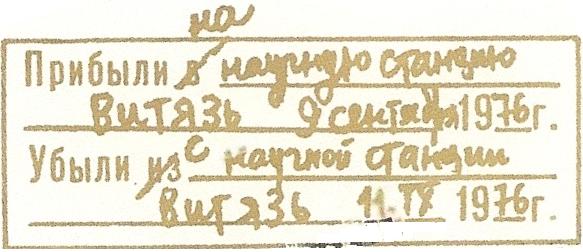 на
Прибыли в научную станцию
ВИТЯЗЬ 9 сентября 1976 г.
Убыли из с научной станции
ВИТЯЗЬ 11.IX 1976 г.